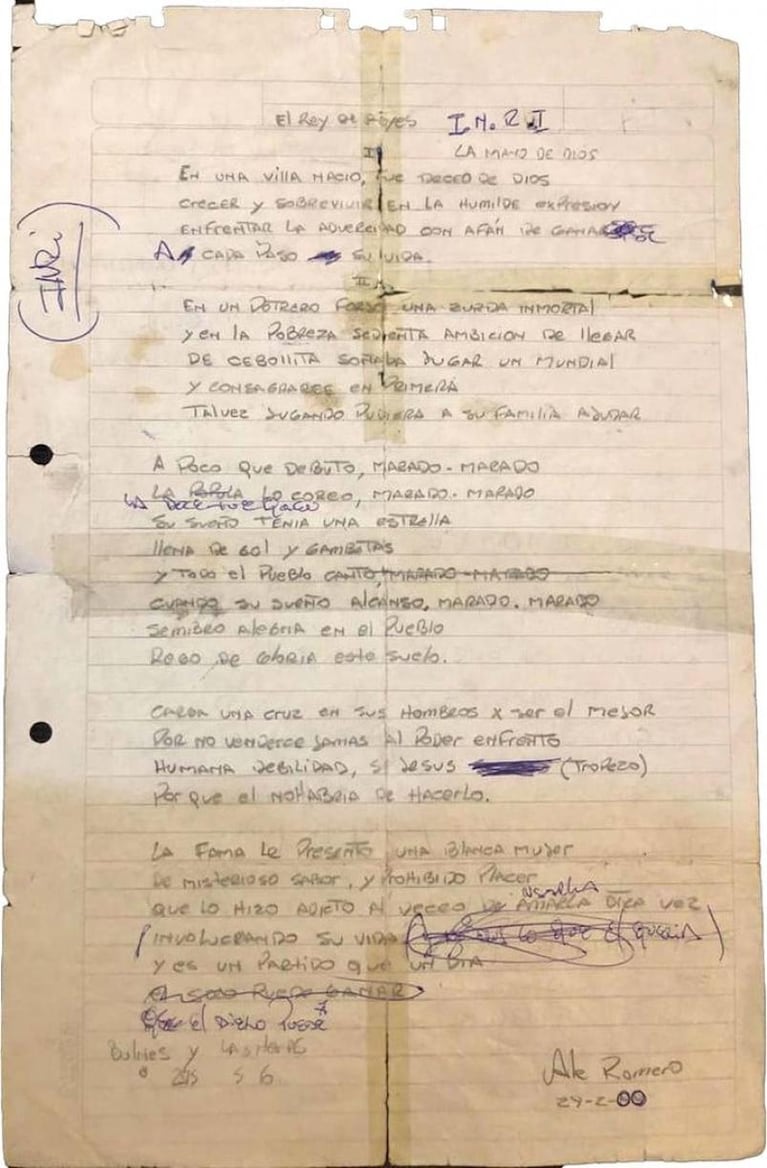 El Rey de Reyes I.N.R.I
I
LA MANO DE DIOS
EN UNA VILLA NACIO, FUE DECEO DE DIOS
CRECER Y SOBREVIVIR EN LA HUMILDE EXPRESION
ENFRENTAR LA ADVERCIDAD CON AFÁN DE GANARSE
A CADA PASO SU VIDA.
(INRi)
II
EN UN POTRERO FORJO UNA ZURDA INMORTAl
Y EN lA POBREZA SEDIENTA AMBICION DE llEGAR
DE CEBOLLITA SOÑABA JUGAR UN MUNDIAl
Y CONSAGRARCE EN PRIMERA
TALVEZ JUGANDO PUDIERA A SU FAMILIA AYUDAR
A POCO QUE DEBUTO, MARADO - MARADO
LA POPULA LO COREO, MARADO - MARADO
LA DOCE FUE QUIEN
SU SUEÑO TENIA UNA ESTRELLA
llENA DE GOL Y GAMBETAS
Y TODO El PUEBLO CANTO, MARADO - MARADO
CUANDO SU SUEÑO ALCANSO, MARADO. MARADO
SEMIBRO AlEGRIA EN El PUEBLO
REGO DE GLORIA ESTE SUELO.
CARGA UNA CRUZ EN SUS HOMBROS X SER El MEJOR
POR NO VENDERCE JAMAS Al PODER ENFRENTO
HUMANA DEBILIDAD, SI JESUS (TROPEZO)
POR QUE El NO HABRIA DE HACERLO.
LA FAMA LE PRESENTO UNA BLANCA MUJER
DE MISTERIOSO SABOR, Y PROHIBIDO PLACER
QUE LO HIZO ADICTO Al DECEO DE AMARLA OTRA VEZ
USARLA
INVOLUCRANDO SU VIDA
Y ES UN PARTIDO QUE UN DIA
El SOLO PUEDE GANAR
QUE El DIEGO
BulNES Y
Ale Romero
24-2-00